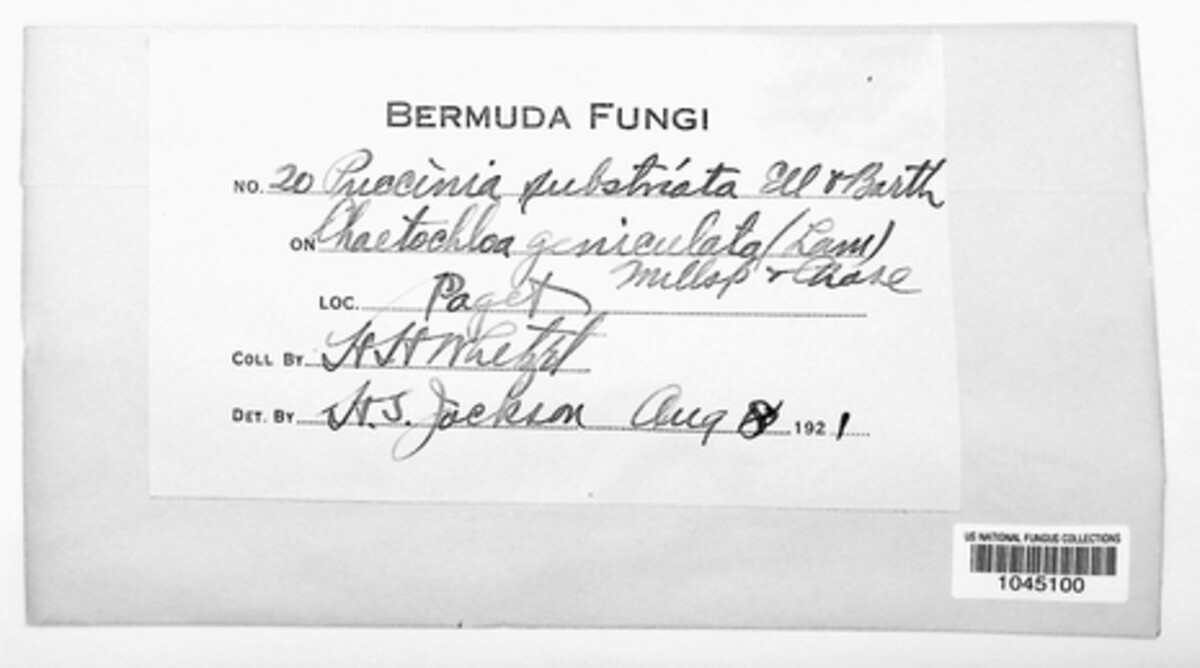 BERMUDA FUNGI
NO. 20 Puccinia substriata Ell & Barth
ON Chaetochloa geniculata (Lam)
Millsp & Chase
LOC. Paget
COLL BY H H Whetzel
DET. BY H.S. Jackson Aug 8 1921
US NATIONAL FUNGUS COLLECTIONS
1045100